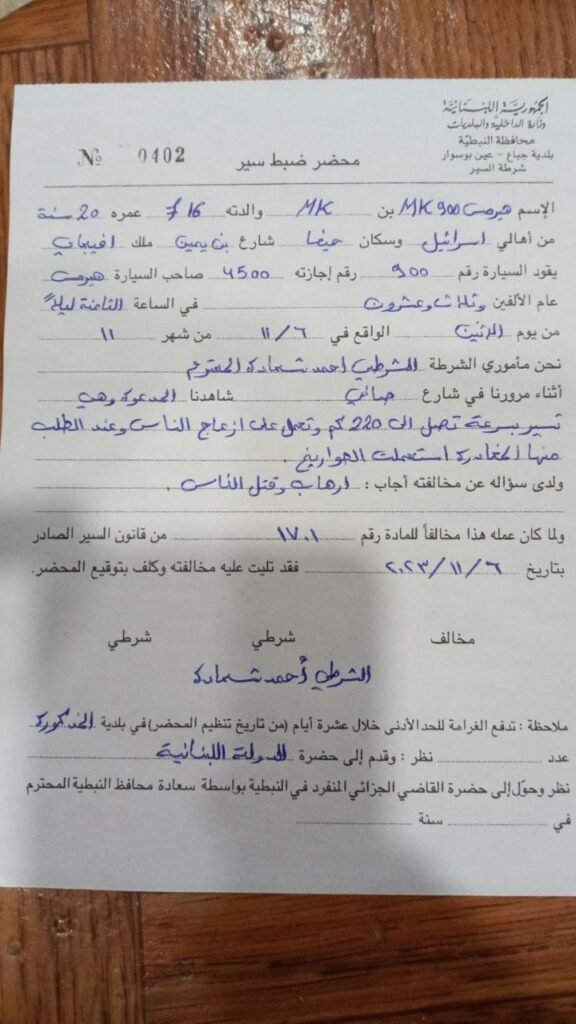 الجمهورية اللبنانية
وزارة الداخلية والبلديات
محافظة النبطية
بلدية جباع - عين بوسوار
شرطة السير
№ 0402
محضر ضبط سير
الإسم هيرمس 900 MK بن MK والدته 16 f عمره 20 سنة
من أهالي اسرائيل وسكان حيفا شارع بن يمين ملك افيخاي
يقود السيارة رقم 900 رقم إجازته 4500 صاحب السيارة هيرمس
عام الألفين وثلاث وعشرون في الساعة الثامنة ليلاً
من يوم الاثنين الواقع في ١١/٦ من شهر ١١
نحن مأموري الشرطة الشرطي احمد شحادة المحترم
أثناء مرورنا في شارع صافي شاهدنا المدعوة وهي
تسير بسرعة تصل الى 220 كم وتعمل على ازعاج الناس وعند الطلب
منها المغادرة استعملت الصواريخ .
ولدى سؤاله عن مخالفته أجاب : ارهاب وقتل الناس .
ولما كان عمله هذا مخالفاً للمادة رقم ١٧٠١ من قانون السير الصادر
بتاريخ ٢٠٢٣/١١/٦ فقد تليت عليه مخالفته وكلف بتوقيع المحضر.
مخالف شرطي شرطي
الشرطي أحمد شحادة
ملاحظة : تدفع الغرامة للحد الأدنى خلال عشرة أيام (من تاريخ تنظيم المحضر) في بلدية المذكورة
عدد نظر : وقدم إلى حضرة الدولة اللبنانية
نظر وحوّل إلى حضرة القاضي الجزائي المنفرد في النبطية بواسطة سعادة محافظ النبطية المحترم
في سنة